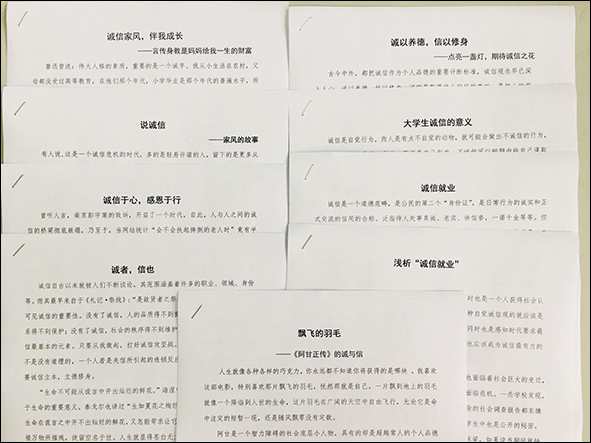 诚信家风，伴我成长
——言传身教是妈妈给我一生的财富
鲁迅曾说：伟大人格的素质，重要的是一个诚字。我从小生活在农村，父
母都没受过高等教育，在他们那个年代，小学毕业是那个年代的普遍水平，所
说诚信
——家风的故事
有人说，这是一个诚信危机的时代，多的是轻易许诺的人，留下的是更多从
诚信于心，感恩于行
曾听人言，南京彭宇案的败诉，开启了一个时代，自此，人与人之间的诚
信的桥梁彻底崩塌，乃至于，当网站统计“会不会扶起摔倒的老人时”竟有半
诚者，信也
诚信自古以来就被人们不断谈论，其范围涵盖着许多的职业、领域、身份
等。而其最早来自于《礼记·祭统》：“是故贤者之祭
可见诚信的重要性。没有了诚信，人的品质得不到
系得不到保护；没有了诚信，社会的秩序得不到维护
信最基本的元素。只要从我做起，打好诚信攻坚战，
不是没有道理的，一个人若是失信所引起的连锁反
要诚信立本，立德修身。
“生命不可能从谎言中开出灿烂的鲜花。”海涅
于生命的重要意义。泰戈尔也讲过“生如夏花之绚
生命在谎言之中开出灿烂的鲜花，又怎能苛求让它
被万物所强残，欲留空名于世。人生就显得苍白无
诚以养德，信以修身
——点亮一盏灯，期待诚信之花
古今中外，都把诚信作为个人品德的重要评断标准，诚信观念早已深
大学生诚信的意义
诚信是自觉行为，而人是有点不自觉的动物，就可能会做出不诚信的行为，
诚信就业
诚信是一个道德范畴，是公民的第二个“身份证”，是日常行为的诚实和正
式交流的信用的合称。泛指待人处事真诚、老实、讲信誉，一语千金等等。但
浅析“诚信就业”
时也是一个人获得社会认
种自觉诚信观的就应该是
同时也是络和时代要求最
也应该成为诚信最有力的
面临着社会巨大的变迁，
面临着危机。一些学校发现，
验的社会调查服务都东缴
学生中也是公开的秘密。
飘飞的羽毛
——《阿甘正传》的诚与信
人生就像各种各样的巧克力，你永远都不知道你将获得的是哪块。我喜欢
这部电影，特别喜欢那片飘飞的羽毛，恍然那就是自己。一片飘到地上的羽毛
就像一个降临到人世的生命，这片羽毛在广阔的天空中自由飞行，无论它是命
中注定的短暂一现，还是随风飘零没有定数。
阿甘是一个智力障碍的社会底层小人物，具有的却是超越常人的个人品德